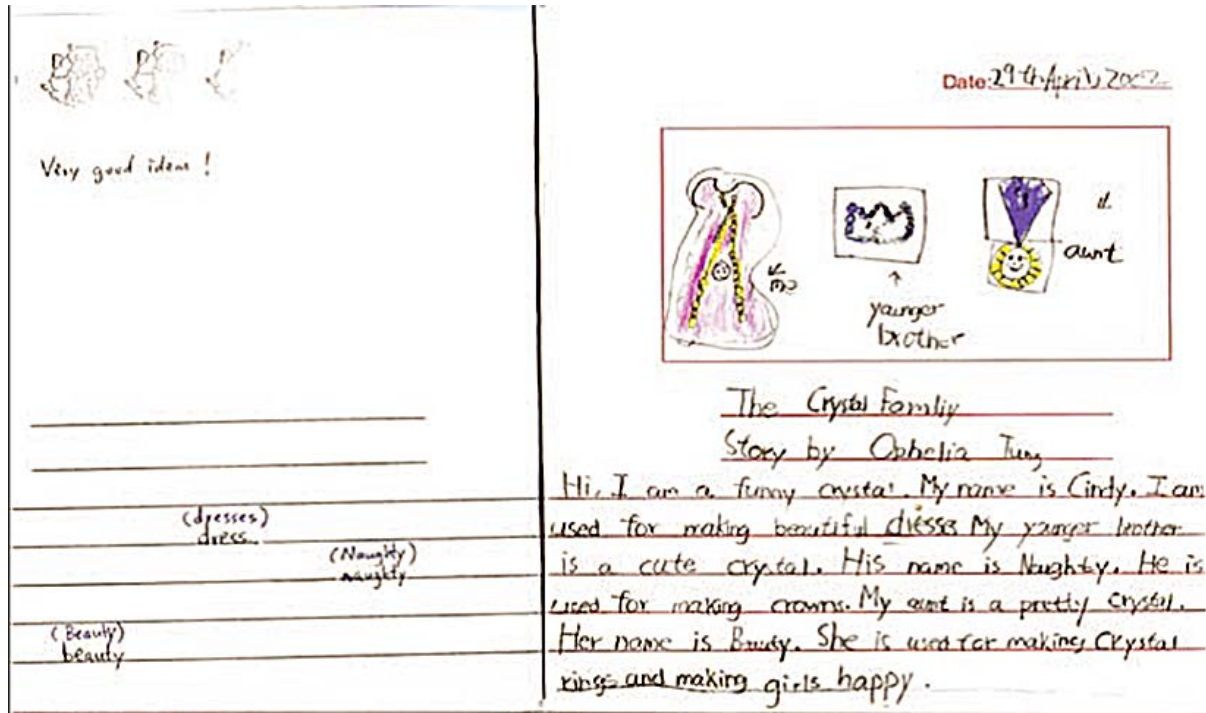 Very good ideas!
(dresses)
dress
(Naughty)
naughty
(Beauty)
beauty
Date: 29th April, 2002
me
younger
brother
aunt
The Crystal Famliy
Story by Ophelia Tung
Hi, I am a funny crystal. My name is Cindy. I am
used for making beautiful dresses My younger brother
is a cute crystal. His name is Naughty. He is
used for making crowns. My aunt is a pretty crystal.
Her name is Beauty. She is used for making Crystal
rings and making girls happy.